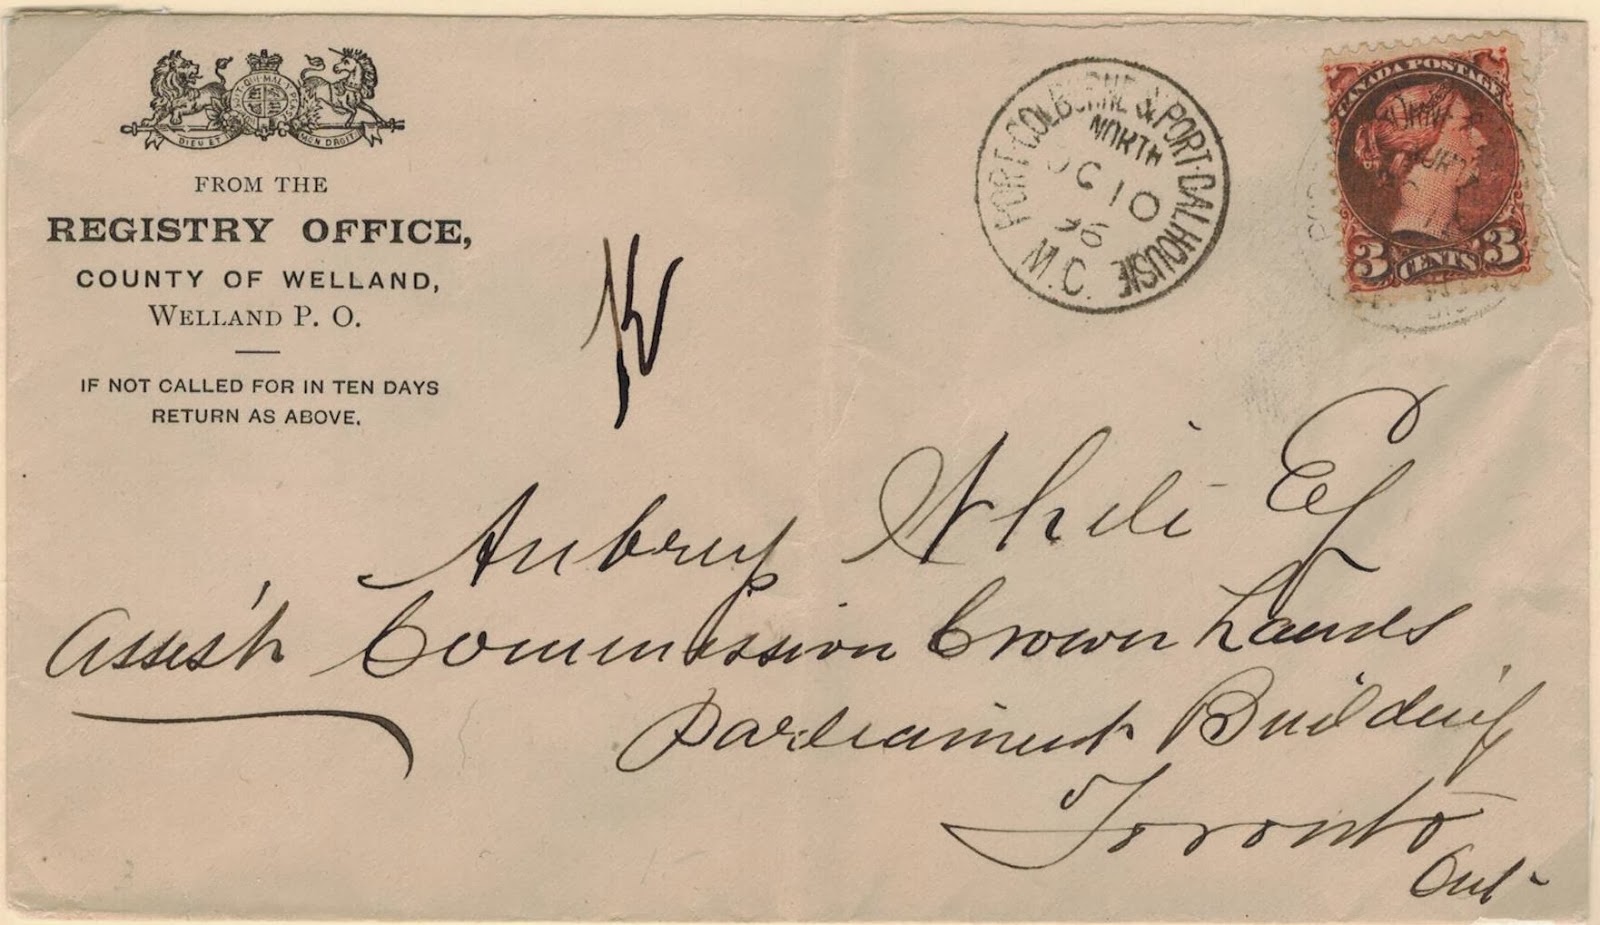 DIEU ET MON DROIT
FROM THE
REGISTRY OFFICE,
COUNTY OF WELLAND,
WELLAND P. O.
IF NOT CALLED FOR IN TEN DAYS
RETURN AS ABOVE.
PORT-COLBORNE & PORT-DALHOUSIE
NORTH
OC 10
96
M.C.
CANADA POSTAGE
3 CENTS 3
Aubrey White Esq
Assist Commission Crown Lands
Parliament Building
Toronto
Ont-